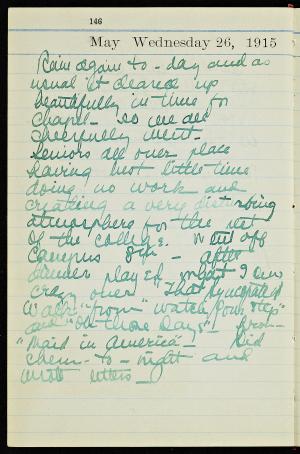 146
May Wednesday 26, 1915
Rain again to-day and as
usual it cleared up
beautifully in time for
chapel - so we all
cheerfully went.
Seniors all over place
having hot little time
doing no work and
creating a very disturbing
atmosphere for the rest
of the college. Went off
campus
dinner played might I am
crazy over that syncopated
Waltz from "Watch Your Step"
and "Oh those Days" from
"Maid in America" - Did
chem - to-night and
wrote letters -